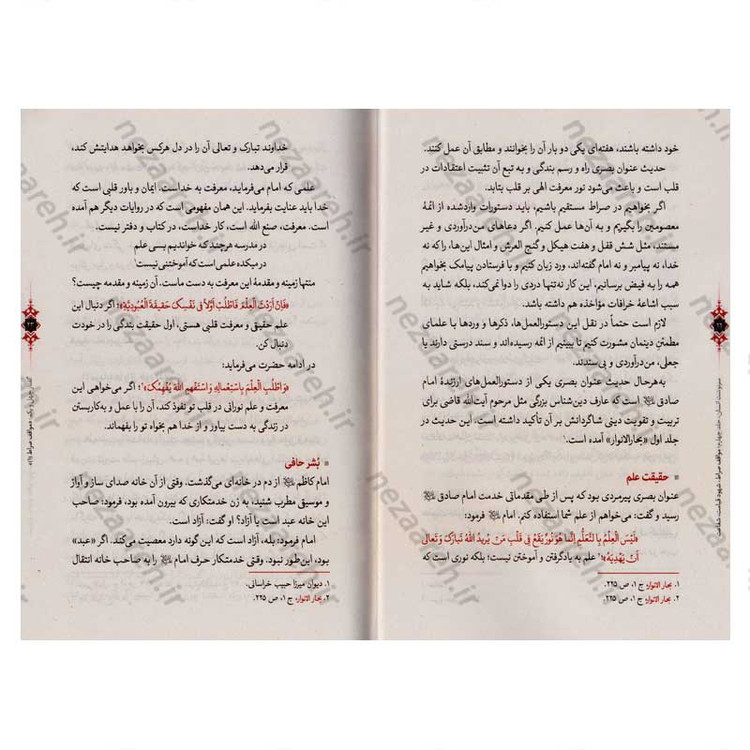 خود داشته باشند، هفته‌ای یکی دو بار آن را بخوانند و مطابق آن عمل کنند.
حدیث عنوان بصری راه و رسم بندگی و به تبع آن تثبیت اعتقادات در
قلب است و باعث می‌شود نور معرفت الهی بر قلب بتابد.
اگر بخواهیم در صراط مستقیم باشیم، باید دستورات واردشده از ائمۀ
معصومین را بگیریم و به آن‌ها عمل کنیم. اگر دعاهای من‌درآوردی و غیر
مستند، مثل شش قفل و هفت هیکل و گنج العرش و امثال این‌ها، را که نه
خدا، نه پیامبر و نه امام گفته‌اند، ورد زبان کنیم و با فرستادن پیامک بخواهیم
همه را به فیض برسانیم، این کار نه‌تنها دردی را دوا نمی‌کند، بلکه شاید به
سبب اشاعۀ خرافات مؤاخذه هم داشته باشد.
لازم است حتماً در نقل این دستورالعمل‌ها، ذکرها و وردها با علمای
مطمئن دینمان مشورت کنیم تا ببینیم از ائمه رسیده‌اند و سند درستی دارند یا
جعلی، من‌درآوردی و بی‌سندند.
به‌هرحال حدیث عنوان بصری یکی از دستورالعمل‌های ارزندۀ امام
صادق است که عارف دین‌شناس بزرگی مثل مرحوم آیت‌الله قاضی برای
تربیت و تقویت دینی شاگردانش بر آن تأکید داشته است. این حدیث در
جلد اول «بحارالانوار» آمده است.۱
حقیقت علم
عنوان بصری پیرمردی بود که پس از طی مقدماتی خدمت امام صادق
رسید و گفت: می‌خواهم از علم شما استفاده کنم. امام فرمود:
«لَیْسَ الْعِلْمُ بِالتَّعَلُّمِ إِنَّمَا هُوَ نُورٌ یَقَعُ فِی قَلْبِ مَنْ یُرِیدُ اللَّهُ تَبَارَکَ وَ تَعَالَی
أَنْ یَهْدِیَهُ»؛۲ علم به یادگرفتن و آموختن نیست؛ بلکه نوری است که
۱. بحار الانوار، ج ۱، ص ۲۲۵.
۲. بحار الانوار، ج ۱، ص ۲۲۵.
سرنوشت انسان، جلد چهارم: مواقف صراط، شهود قیامت، شفاعت
خداوند تبارک و تعالی آن را در دل هرکس بخواهد هدایتش کند،
قرار می‌دهد.
علمی که امام می‌فرماید، معرفت به خداست. ایمان و باور قلبی است که
خدا باید عنایت بفرماید. این همان مفهومی است که در روایات دیگر هم آمده
است. معرفت، صنع الله است، کار خداست، در کتاب و دفتر نیست.
در مدرسه هرچند که خواندیم بسی علم
در میکده علمی است که آموختنی نیست۱
منتها زمینه و مقدمۀ این معرفت به دست ماست. آن زمینه و مقدمه چیست؟
«فَإِنْ أَرَدْتَ الْعِلْمَ فَاطْلُبْ أَوَّلًا فِی نَفْسِکَ حَقِیقَةَ الْعُبُودِیَّةِ»؛ اگر دنبال این
علم حقیقی و معرفت قلبی هستی، اول حقیقت بندگی را در خودت
دنبال کن.
در ادامه حضرت می‌فرماید:
«وَ اطْلُبِ الْعِلْمَ بِاسْتِعْمَالِهِ وَ اسْتَفْهِمِ اللَّهَ یُفْهِمْکَ»؛۲ اگر می‌خواهی این
معرفت و علم نورانی در قلب تو نفوذ کند، آن را با عمل و به‌کاربستن
در زندگی به دست بیاور و از خدا هم بخواه تو را بفهماند.
بُشر حافی
امام کاظم از دم در خانه‌ای می‌گذشت. وقتی از آن خانه صدای ساز و آواز
و موسیقی مطرب شنید، به زن خدمتکاری که بیرون آمده بود، فرمود: صاحب
این خانه عبد است یا آزاد؟ او گفت: آزاد است.
امام فرمود: بله، آزاد است که این گونه دارد معصیت می‌کند. اگر «عبد»
بود، این‌طور نبود. وقتی خدمتکار حرف امام را به صاحب خانه انتقال
۱. دیوان میرزا حبیب خراسانی.
۲. بحار الانوار، ج ۱، ص ۲۲۵.
nezaareh.ir